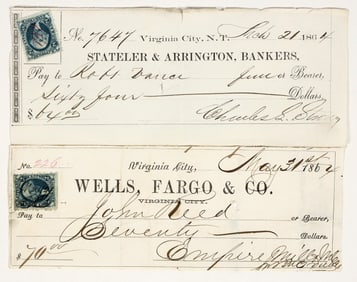 No. 7647 Virginia City, N.T. Feb 21 1864
STATELER & ARRINGTON, BANKERS,
Pay to Robt or Bearer,
Sixty four Dollars
$64.00 Charles L.
No. 226 Virginia City, May 31st 1864
WELLS, FARGO & CO.
VIRGINIA CITY.
Pay to John Reed or Bearer,
Seventy Dollars.
$70.00 Empire Mill